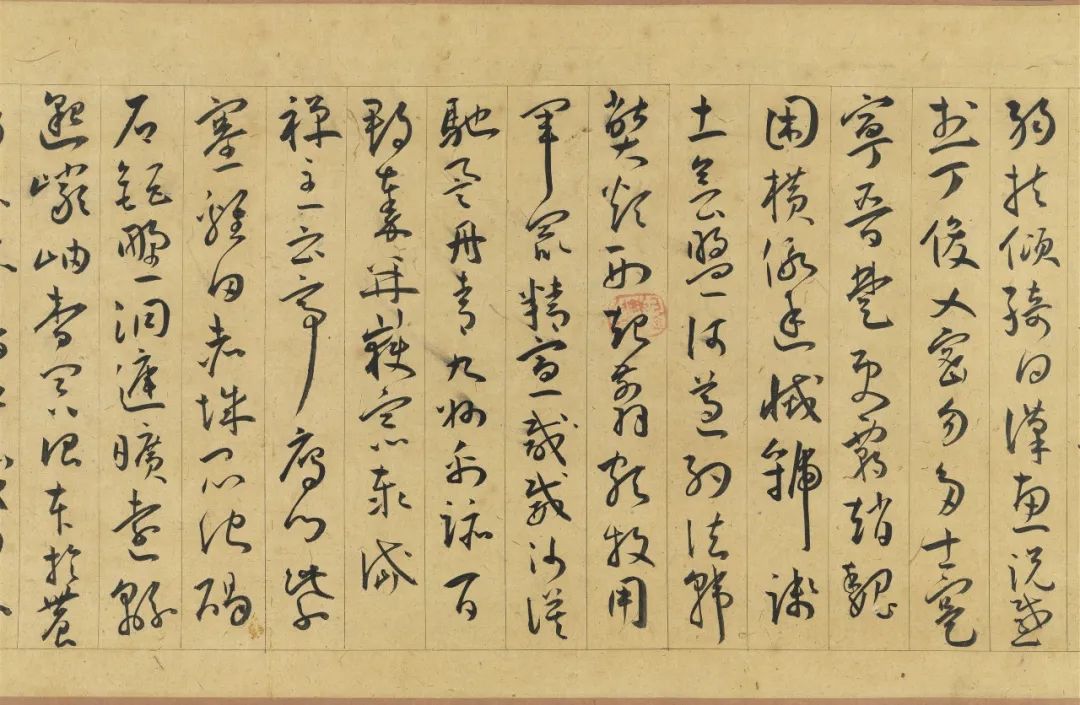 弱扶傾綺回漢惠說感
武丁俊乂密勿多士寔
寧晉楚更霸趙魏
困橫假途滅虢踐
土會盟何遵約法韓
弊煩刑起翦頗牧用
軍最精宣威威沙漠
馳譽丹青九州禹跡百
郡秦并嶽宗泰岱
禪主云亭雁門紫
塞雞田赤城昆池碣
石鉅野洞庭曠遠綿
邈巖岫杳冥治本於農